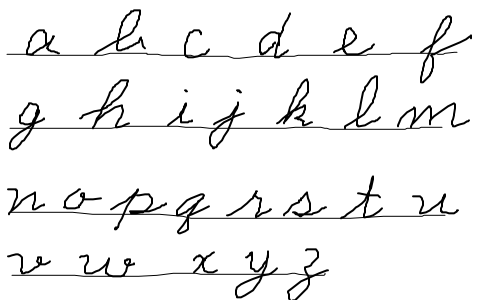 a b c d e f
g h i j k l m
n o p q r s t u
v w x y z